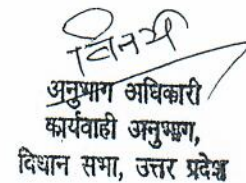 विनय
अनुभाग अधिकारी
कार्यवाही अनुभाग,
विधान सभा, उत्तर प्रदेश